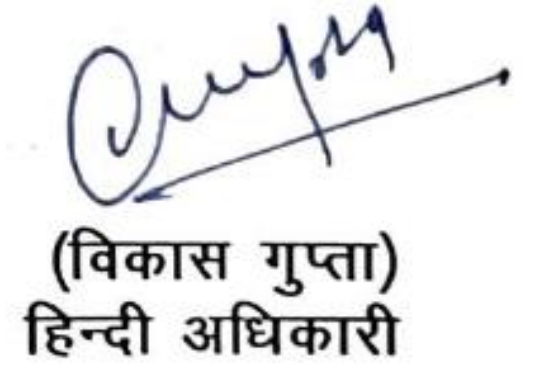 (विकास गुप्ता)
हिन्दी अधिकारी